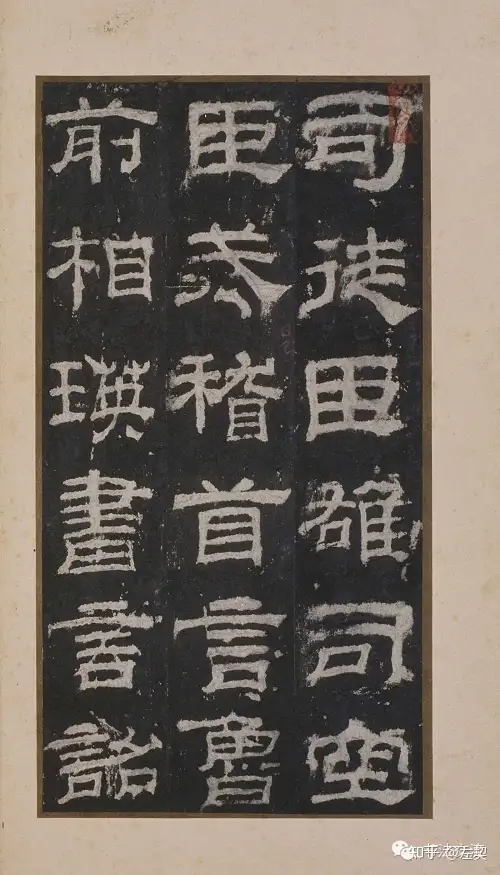 司徒臣雄司空
臣戒稽首言魯
前相瑛書言詔
知乎